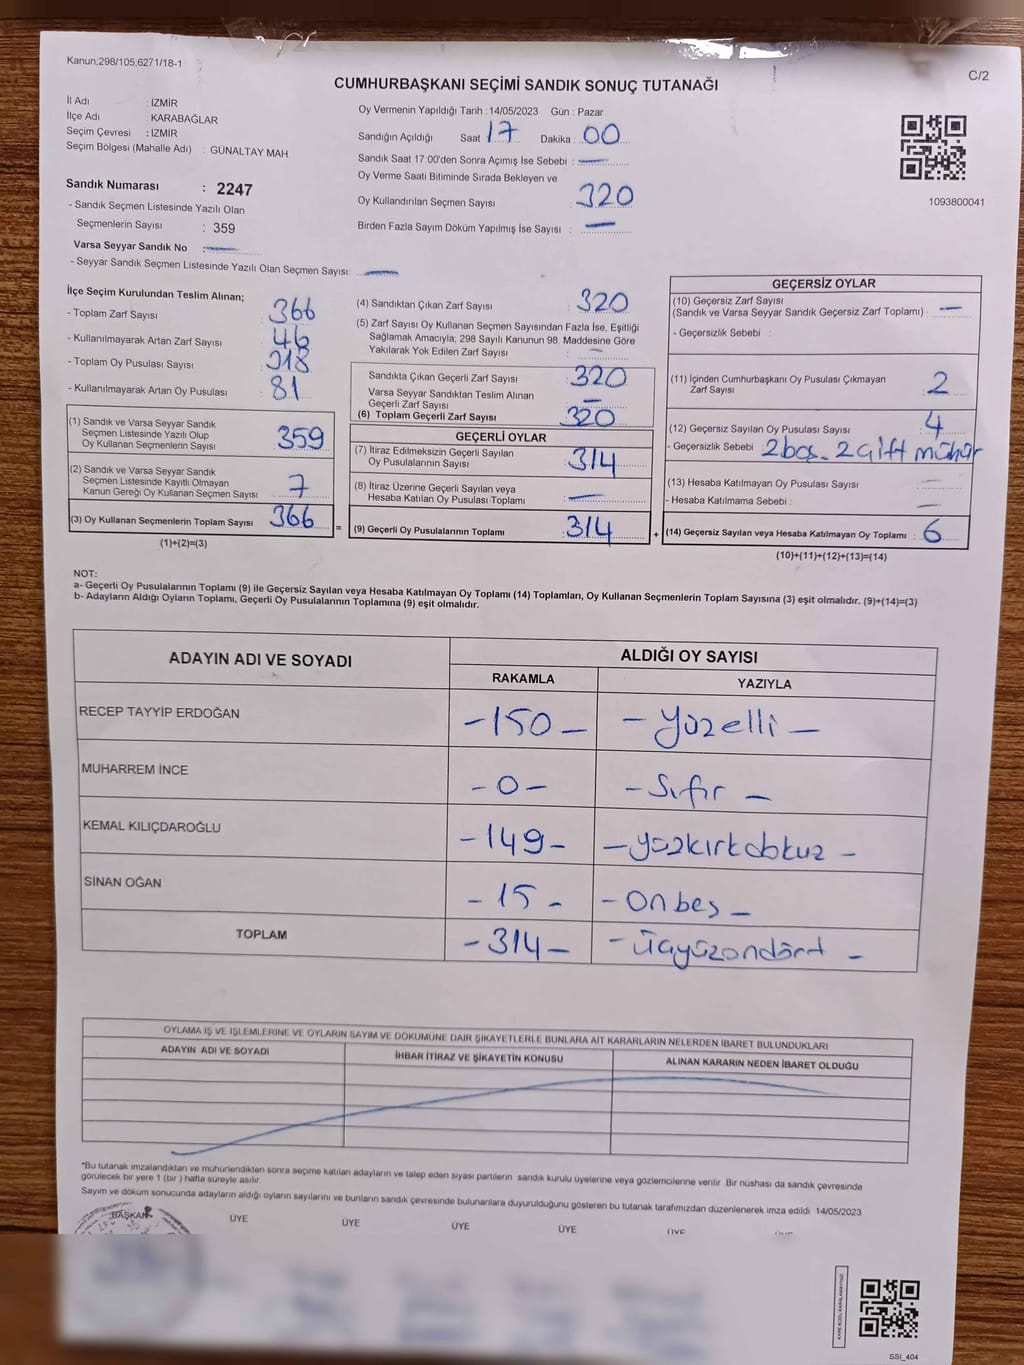 Kanun,298/105;6271/18-1
C/2
CUMHURBAŞKANI SEÇİMİ SANDIK SONUÇ TUTANAĞI
İl Adı : İZMİR
İlçe Adı : KARABAĞLAR
Seçim Çevresi : İZMİR
Seçim Bölgesi (Mahalle Adı) : GÜNALTAY MAH
Sandık Numarası : 2247
- Sandık Seçmen Listesinde Yazılı Olan
Seçmenlerin Sayısı : 359
Varsa Seyyar Sandık No : —
- Seyyar Sandık Seçmen Listesinde Yazılı Olan Seçmen Sayısı: —
Oy Vermenin Yapıldığı Tarih : 14/05/2023 Gün : Pazar
Sandığın Açıldığı Saat 17 Dakika : 00
Sandık Saat 17:00'den Sonra Açımış İse Sebebi : —
Oy Verme Saati Bitiminde Sırada Bekleyen ve
Oy Kullandırılan Seçmen Sayısı : 320
Birden Fazla Sayım Döküm Yapılmış İse Sayısı : —
1093800041
İlçe Seçim Kurulundan Teslim Alınan;
- Toplam Zarf Sayısı : 366
- Kullanılmayarak Artan Zarf Sayısı : 46
- Toplam Oy Pusulası Sayısı : 318
- Kullanılmayarak Artan Oy Pusulası : 81
(1) Sandık ve Varsa Seyyar Sandık
Seçmen Listesinde Yazılı Olup
Oy Kullanan Seçmenlerin Sayısı : 359
(2) Sandık ve Varsa Seyyar Sandık
Seçmen Listesinde Kayıtlı Olmayan
Kanun Gereği Oy Kullanan Seçmen Sayısı : 7
(3) Oy Kullanan Seçmenlerin Toplam Sayısı : 366
(1)+(2)=(3)
(4) Sandıktan Çıkan Zarf Sayısı : 320
(5) Zarf Sayısı Oy Kullanan Seçmen Sayısından Fazla İse, Eşitliği
Sağlamak Amacıyla; 298 Sayılı Kanunun 98. Maddesine Göre
Yakılarak Yok Edilen Zarf Sayısı : —
Sandıkta Çıkan Geçerli Zarf Sayısı : 320
Varsa Seyyar Sandıktan Teslim Alınan
Geçerli Zarf Sayısı : —
(6) Toplam Geçerli Zarf Sayısı : 320
GEÇERLİ OYLAR
(7) İtiraz Edilmeksizin Geçerli Sayılan
Oy Pusulalarının Sayısı : 314
(8) İtiraz Üzerine Geçerli Sayılan veya
Hesaba Katılan Oy Pusulası Toplamı : —
= (9) Geçerli Oy Pusulalarının Toplamı : 314
GEÇERSİZ OYLAR
(10) Geçersiz Zarf Sayısı
(Sandık ve Varsa Seyyar Sandık Geçersiz Zarf Toplamı) : —
- Geçersizlik Sebebi :
(11) İçinden Cumhurbaşkanı Oy Pusulası Çıkmayan
Zarf Sayısı : 2
(12) Geçersiz Sayılan Oy Pusulası Sayısı : 4
- Geçersizlik Sebebi 2 boş - 2 çift mühür
(13) Hesaba Katılmayan Oy Pusulası Sayısı : —
- Hesaba Katılmama Sebebi : —
+ (14) Geçersiz Sayılan veya Hesaba Katılmayan Oy Toplamı : 6
(10)+(11)+(12)+(13)=(14)
NOT:
a- Geçerli Oy Pusulalarının Toplamı (9) ile Geçersiz Sayılan veya Hesaba Katılmayan Oy Toplamı (14) Toplamları, Oy Kullanan Seçmenlerin Toplam Sayısına (3) eşit olmalıdır. (9)+(14)=(3)
b- Adayların Aldığı Oyların Toplamı, Geçerli Oy Pusulalarının Toplamına (9) eşit olmalıdır.
ADAYIN ADI VE SOYADI ALDIĞI OY SAYISI
RAKAMLA YAZIYLA
RECEP TAYYİP ERDOĞAN -150- -yüzelli-
MUHARREM İNCE -0- -Sıfır-
KEMAL KILIÇDAROĞLU -149- -yüzkırkdokuz-
SİNAN OĞAN -15- -onbeş-
TOPLAM -314- -üçyüzondört-
OYLAMA İŞ VE İŞLEMLERİNE VE OYLARIN SAYIM VE DÖKÜMÜNE DAİR ŞİKAYETLERLE BUNLARA AİT KARARLARIN NELERDEN İBARET BULUNDUKLARI
ADAYIN ADI VE SOYADI İHBAR İTİRAZ VE ŞİKAYETİN KONUSU ALINAN KARARIN NEDEN İBARET OLDUĞU
*Bu tutanak imzalandıktan ve mühürlendikten sonra seçime katılan adayların ve talep eden siyasi partilerin sandık kurulu üyelerine veya gözlemcilerine verilir. Bir nüshası da sandık çevresinde
görülecek bir yere 1 (bir ) hafta süreyle asılır.
Sayım ve döküm sonucunda adayların aldığı oyların sayılarını ve bunların sandık çevresinde bulunanlara duyurulduğunu gösteren bu tutanak tarafımızdan düzenlenerek imza edildi 14/05/2023
BAŞKAN ÜYE ÜYE ÜYE ÜYE ÜYE
SSI_404